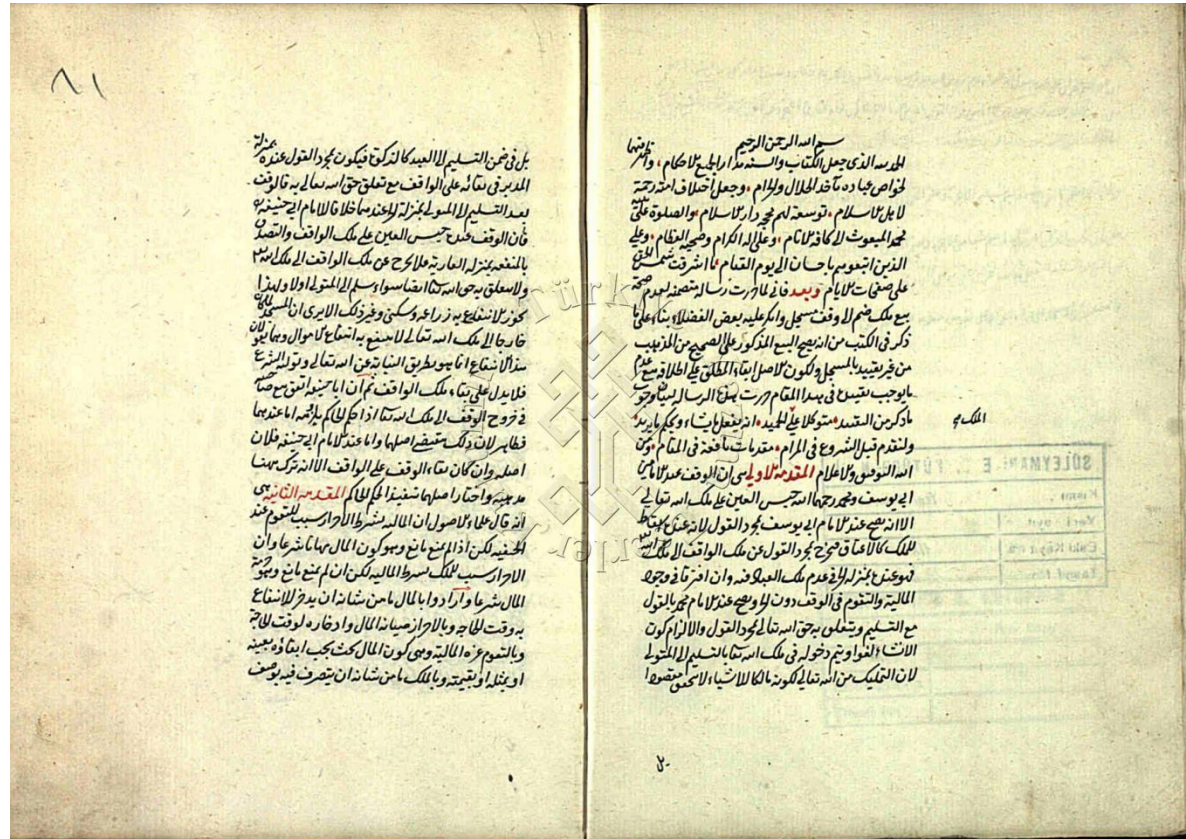 بسم الله الرحمن الرحيم
الحمد لله الذى جعل الكتاب والسنه مدار الجميع الاحكام، واظهر منهما
لخواص عباده مآخذ الحلال والحرام، وجعل اختلاف امته رحمة
لاهل الاسلام، توسعة لهم فى دار الاسلام، والصلوة على نبيه
محمد المبعوث الى كافه الانام، وعلى اله الكرام وصحبه العظام، وعلى
الذين اتبعوهم باحسان الى يوم القيام، ما اشرقت شمس الحق
على صفحات الايام وبعد فانى لما حررت رسالة متضمنه لعدم صحة
بيع ملك ضم الى وقف مسجل وانكر عليه بعض الفضلاء بناء على ما
ذكر فى الكتب من انه يصح البيع المذكور على الصحيح من المذهب
من غير تقييد بالمسجل ولكون الاصل ابقاء المطلق على اطلاقه مع عدم
ما يوجب تقييده فى هذا المقام حررت هذه الرسالة لبيان وجوب
ما ذكر من التقييد، متوكلا على الملك الحميد، انه يفعل ما يشاء ويحكم ما يريد،
ولنقدم قبل الشروع فى المرام، مقدمات نافعة فى المقام، ومن
الله التوفيق والاعلام المقدمه الاولى هى ان الوقف عند الامامين
ابى يوسف ومحمد رحمهما الله حبس العين على ملك الله تعالى
الا انه يصح عند الامام ابى يوسف بمجرد القول لانه عنده اسقاط
للملك كالاعتاق فيخرج بمجرد القول عن ملك الواقف الى ملك الله
فهو عنده بمنزلة الحر فى عدم ملك العبد فيه وان افترقا فى وجود
المالية والتقوم فى الوقف دون الحر ويصح عند الامام محمد بالقول
مع التسليم ويتعلق به حق الله تعالى بمجرد القول والا لزم كون
الانشاء لغوا ويتم دخوله فى ملك الله تعالى بالتسليم الى المتولى
لان التمليك من الله تعالى لكونه مالكا للاشياء لا يتحقق مقصودا
بل
٨١
بل فى ضمن التسليم الى العبد كالزكوة فيكون بمجرد القول عنده بمنزلة
المدبر فى بقائه على الواقف مع تعلق حق الله تعالى به فالوقف
بعد التسليم الى المتولى بمنزلة الحر عندهما خلافا للامام ابى حنيفه
فان الوقف عنده حبس العين على ملك الواقف والتصدق
بالمنفعه بمنزلة العارية فلا يخرج عن ملك الواقف الى ملك الله
ولا يتعلق به حق الله تعالى ايضا سواء سلم الى المتولى اولا ولهذا
يجوز الانتفاع به زراعة وسكنى وغير ذلك الا يرى ان المسجد لما كان
خارجا الى ملك الله تعالى لا ينتفع به انتفاع الاموال وهما يقولان
هذا الانتفاع انما هو بطريق النيابة عن الله تعالى وتولية الشرع
فلا يدل على بقاء ملك الواقف ثم ان ابا حنيفة اتفق مع صاحبيه
فى خروج الوقف الى ملك الله تعالى اذا حكم الحاكم بلزومه اما عندهما
فظاهر لان ذلك مقتضى اصلهما واما عند الامام ابى حنيفه فلان
اصله وان كان بقاء الوقف على الواقف الا انه ترك ههنا
مذهبه واختار اصلهما تنفيذا لحكم الحاكم المقدمه الثانيه هى
انه قال علماء الاصول ان المالية بشرط الاحراز سبب للتقوم عند
الحنفيه لكن اذا لم يمنع مانع وهو كون المال مهانا شرعا وان
الاحراز سبب للملك بشرط الماليه لكن ان لم يمنع مانع وهو حرمة
المال شرعا وارادوا بالمال ما من شانه ان يدخر للانتفاع
به وقت الحاجه وبالاحراز صيانة المال وادخاره لوقت الحاجة
وبالتقوم عزة المالية وهى كون المال بحيث يجب ابقاؤه بعينه
او بمثله او بقيمته وبالملك ما من شانه ان يتصرف فيه بوصف